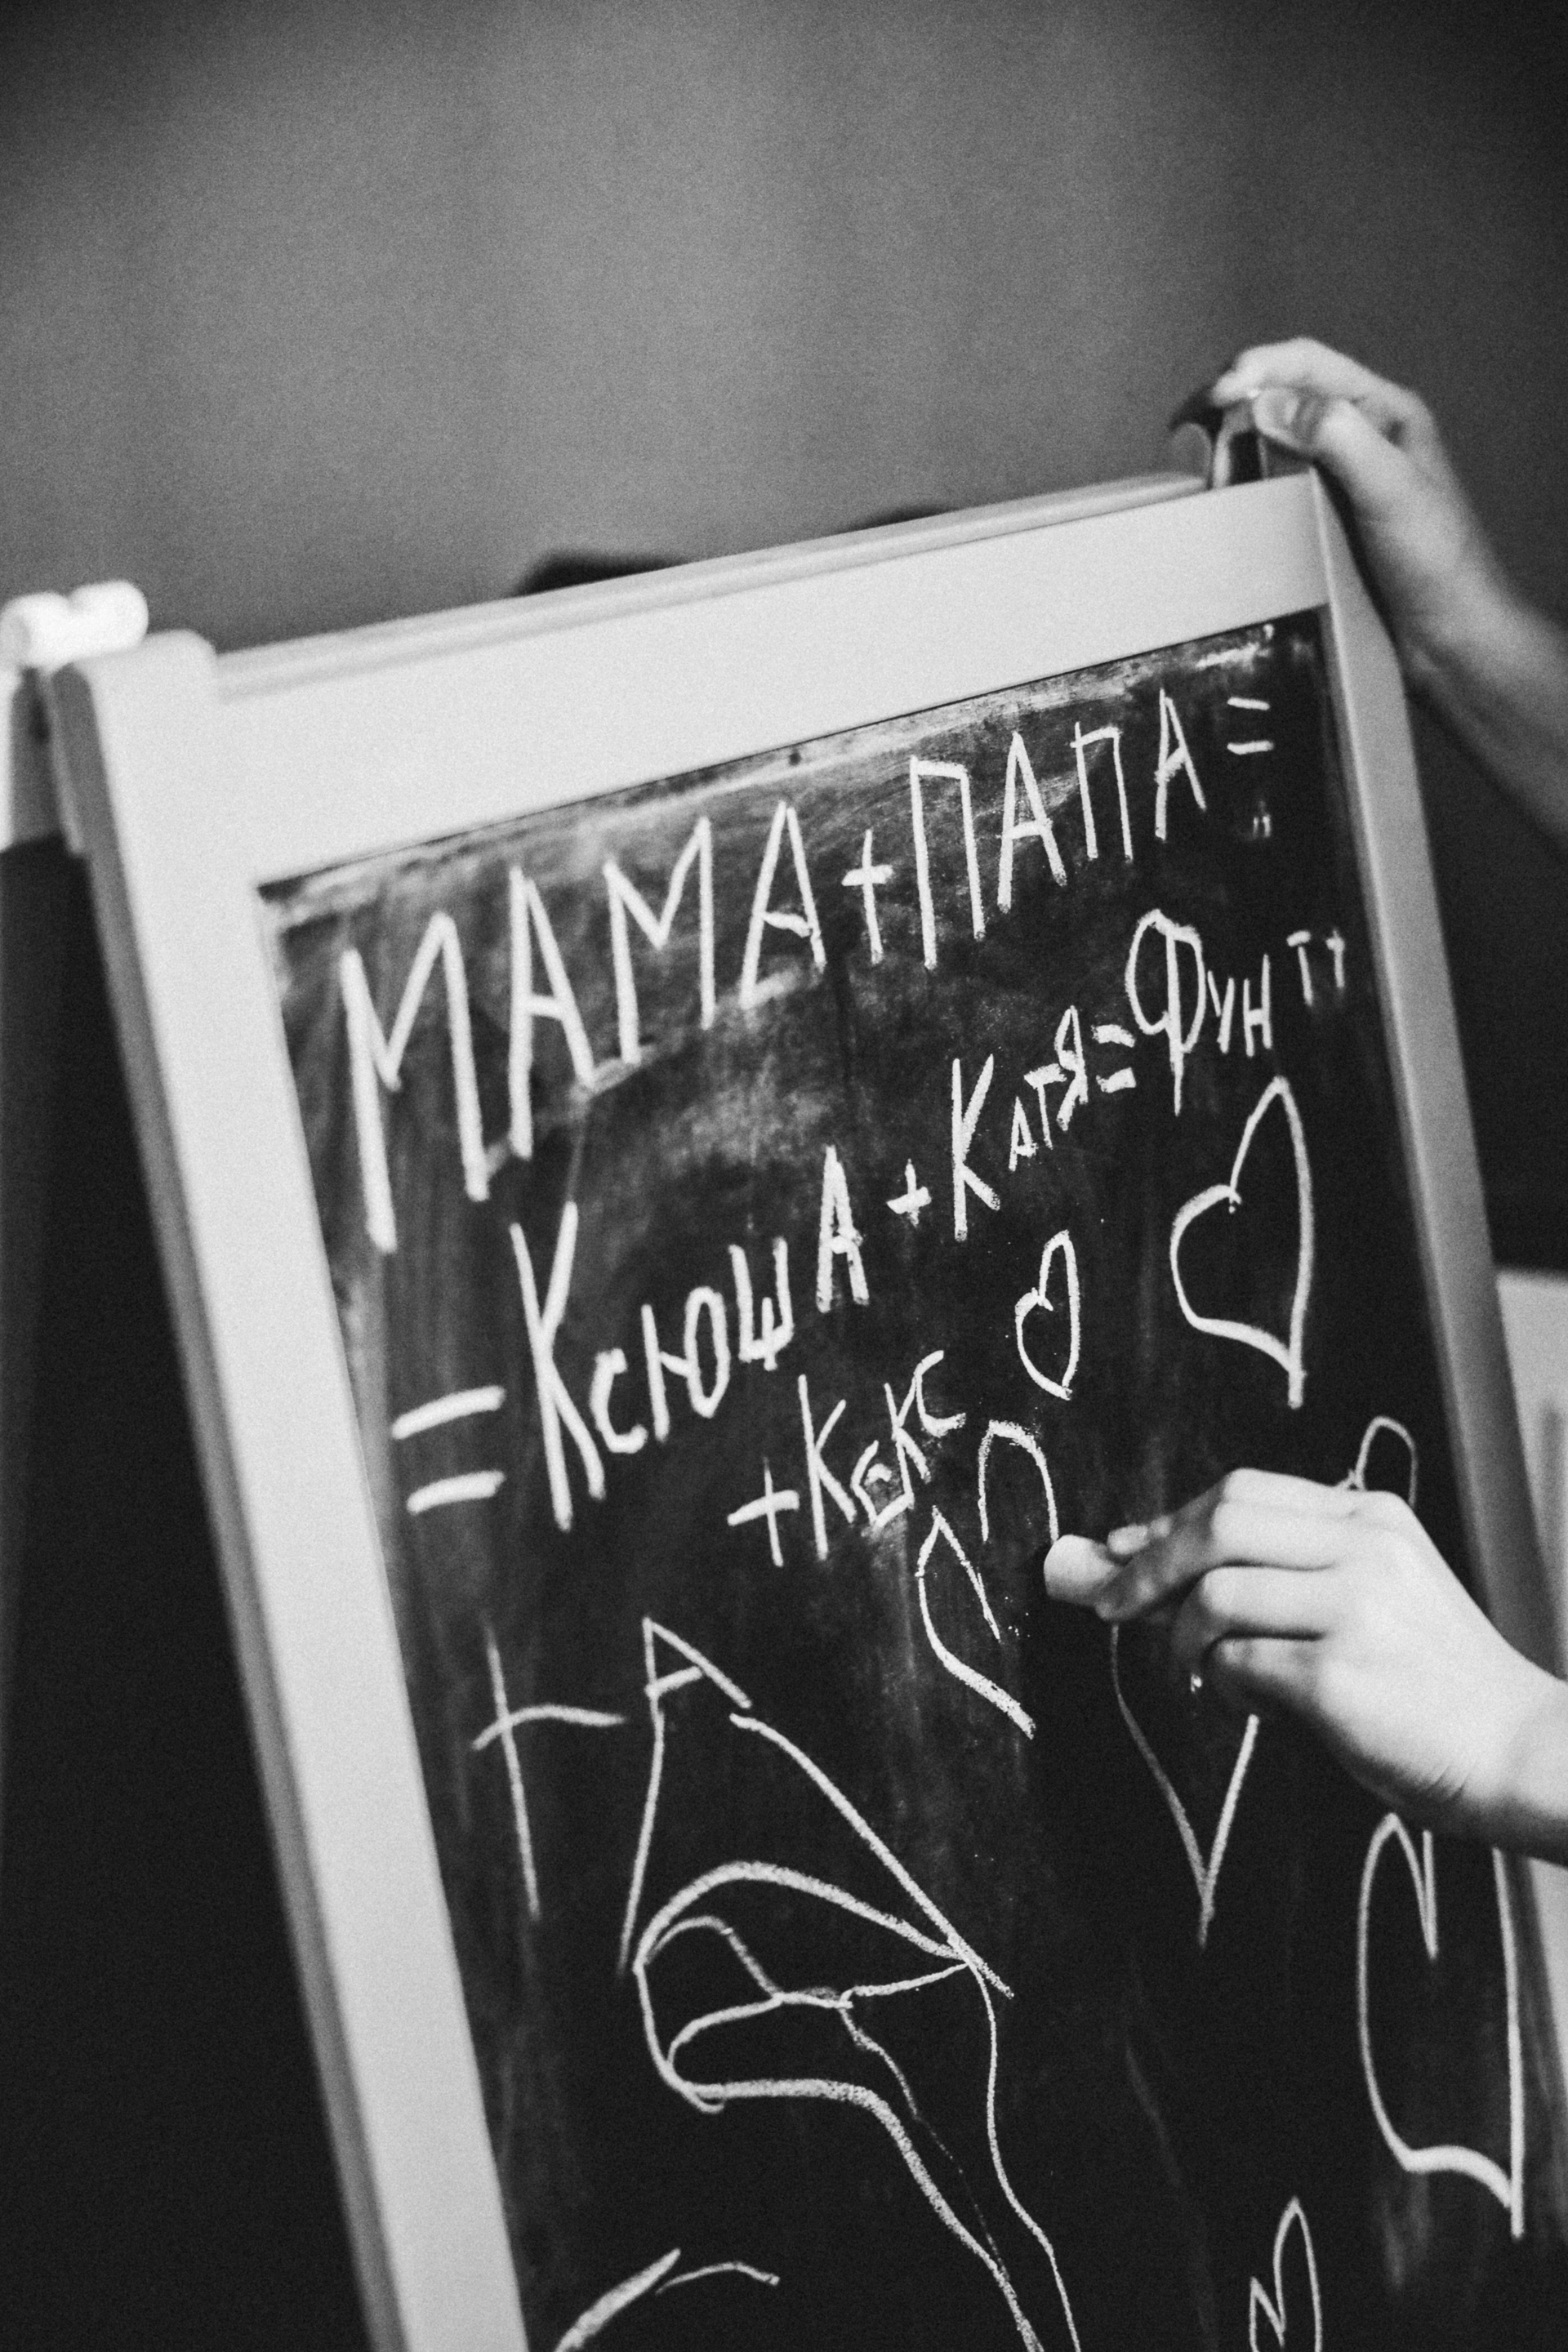 МАМА+ПАПА=
=КсюшА+Катя=Фунтт
+Кекс
+А